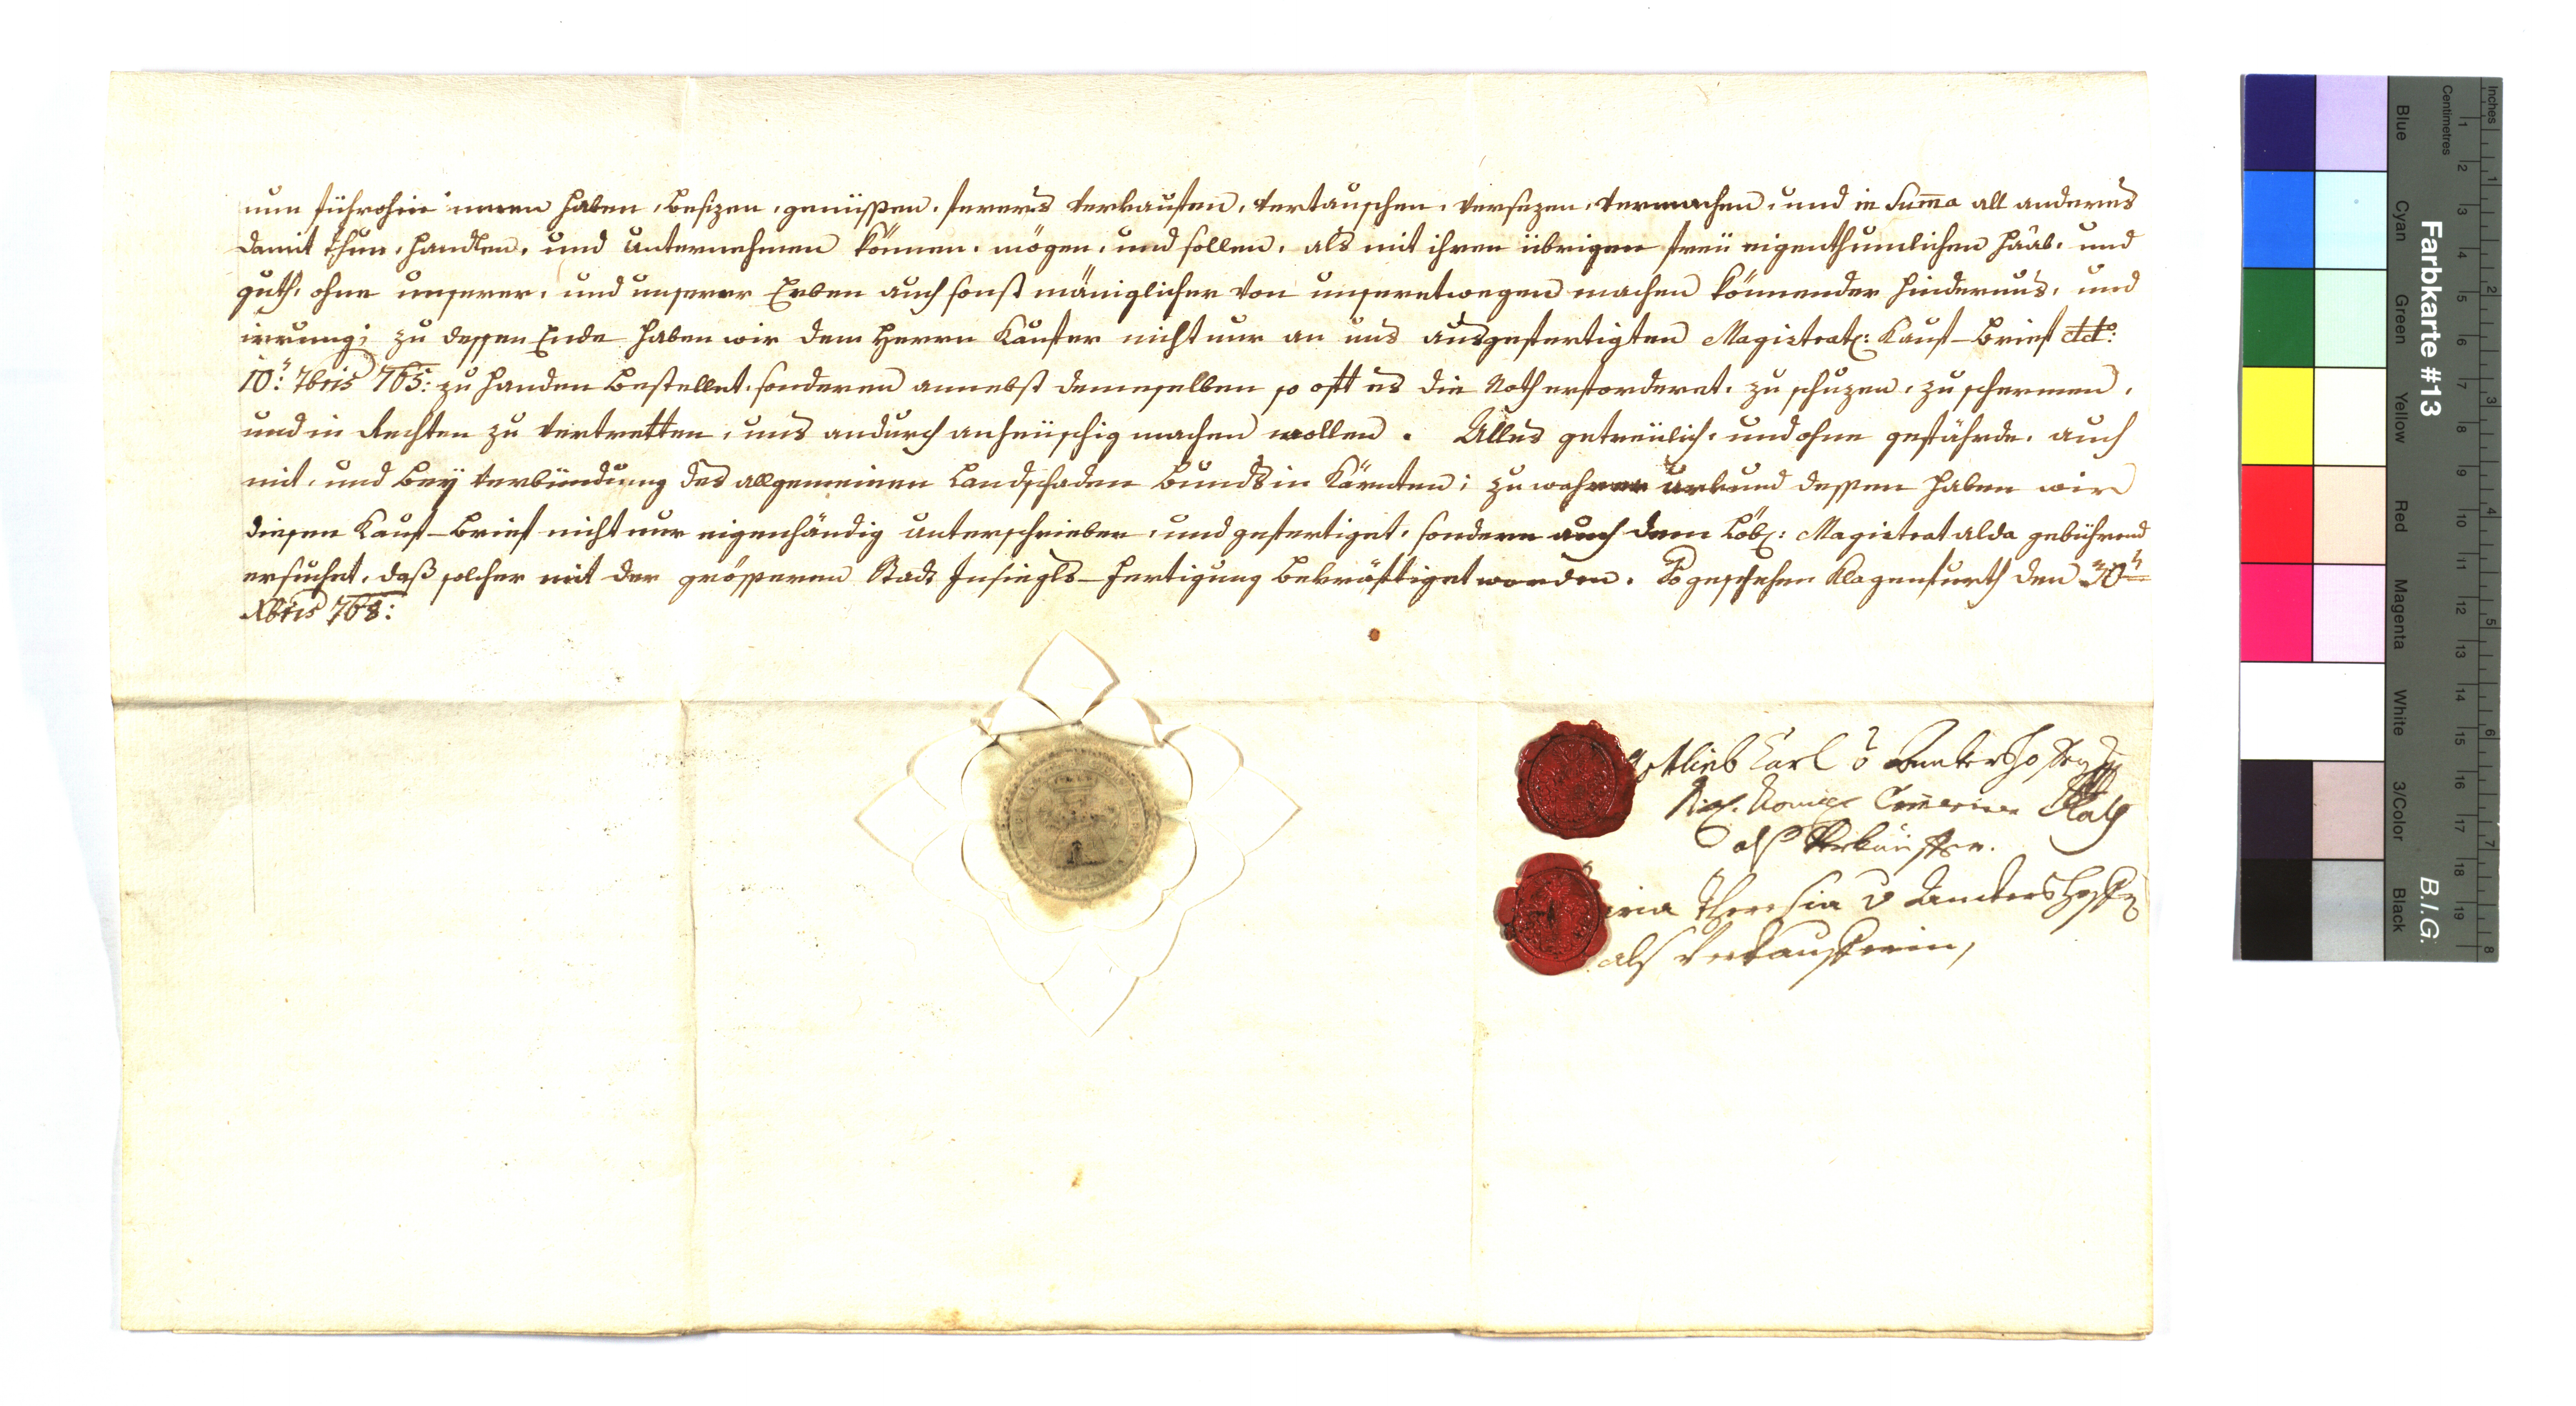 nun führohin innen haben, besizen, genüssen, ferers verkauffen, vertauschen, versezen, vermachen, und in Suma all anderes
damit thun, handlen, und unternehmen können, mögen, und sollen, als mit ihren übrigen freü eigenthumlichen Haab, und
guth, ohne unserer, und unserer Erben auch sonst mäniglicher von unseretwegen machen könnender hindernus, und
irrung; zu dessen Ende haben wir dem Herrn Kauffer nicht nur an uns ausgefertigten Magistratl: Kauf-Brief ddo:
10: 7bris 765: zu handen bestellet, sonderen annebst demeselben so offt es die Noth erforderet, zu schuzen, zu schermen,
und in Rechten zu vertretten, uns andurch anheüschig machen wollen. Alles getreülich, und ohne gefährde, auch
mit, und bey verbündung des allgemeinen Landschaden bunds in Kärnten; zu wahrer urkund dessen haben wir
diesen Kauf-Brief nicht nur eigenhändig unterschrieben, und gefertiget, sondern auch dem Löbl: Magistrat alda gebührend
ersuchet, daß solcher mit der grösseren Stadt Insiegls-fertigung bekräfftiget worden. So geschehen Klagenfurth den 30
Xbris 768:
Gottlieb Carl v Ankershofen
Comercien Rath
als Verkäuffer.
Maria Theresia v Anckershoffen
als Verkaufferin,
Farbkarte #13
B.I.G.
Inches
Centimetres
1 2 3 4 5 6 7 8 9 10 11 12 13 14 15 16 17 18 19
1 2 3 4 5 6 7 8
Blue
Cyan
Green
Yellow
Red
Magenta
White
3/Color
Black